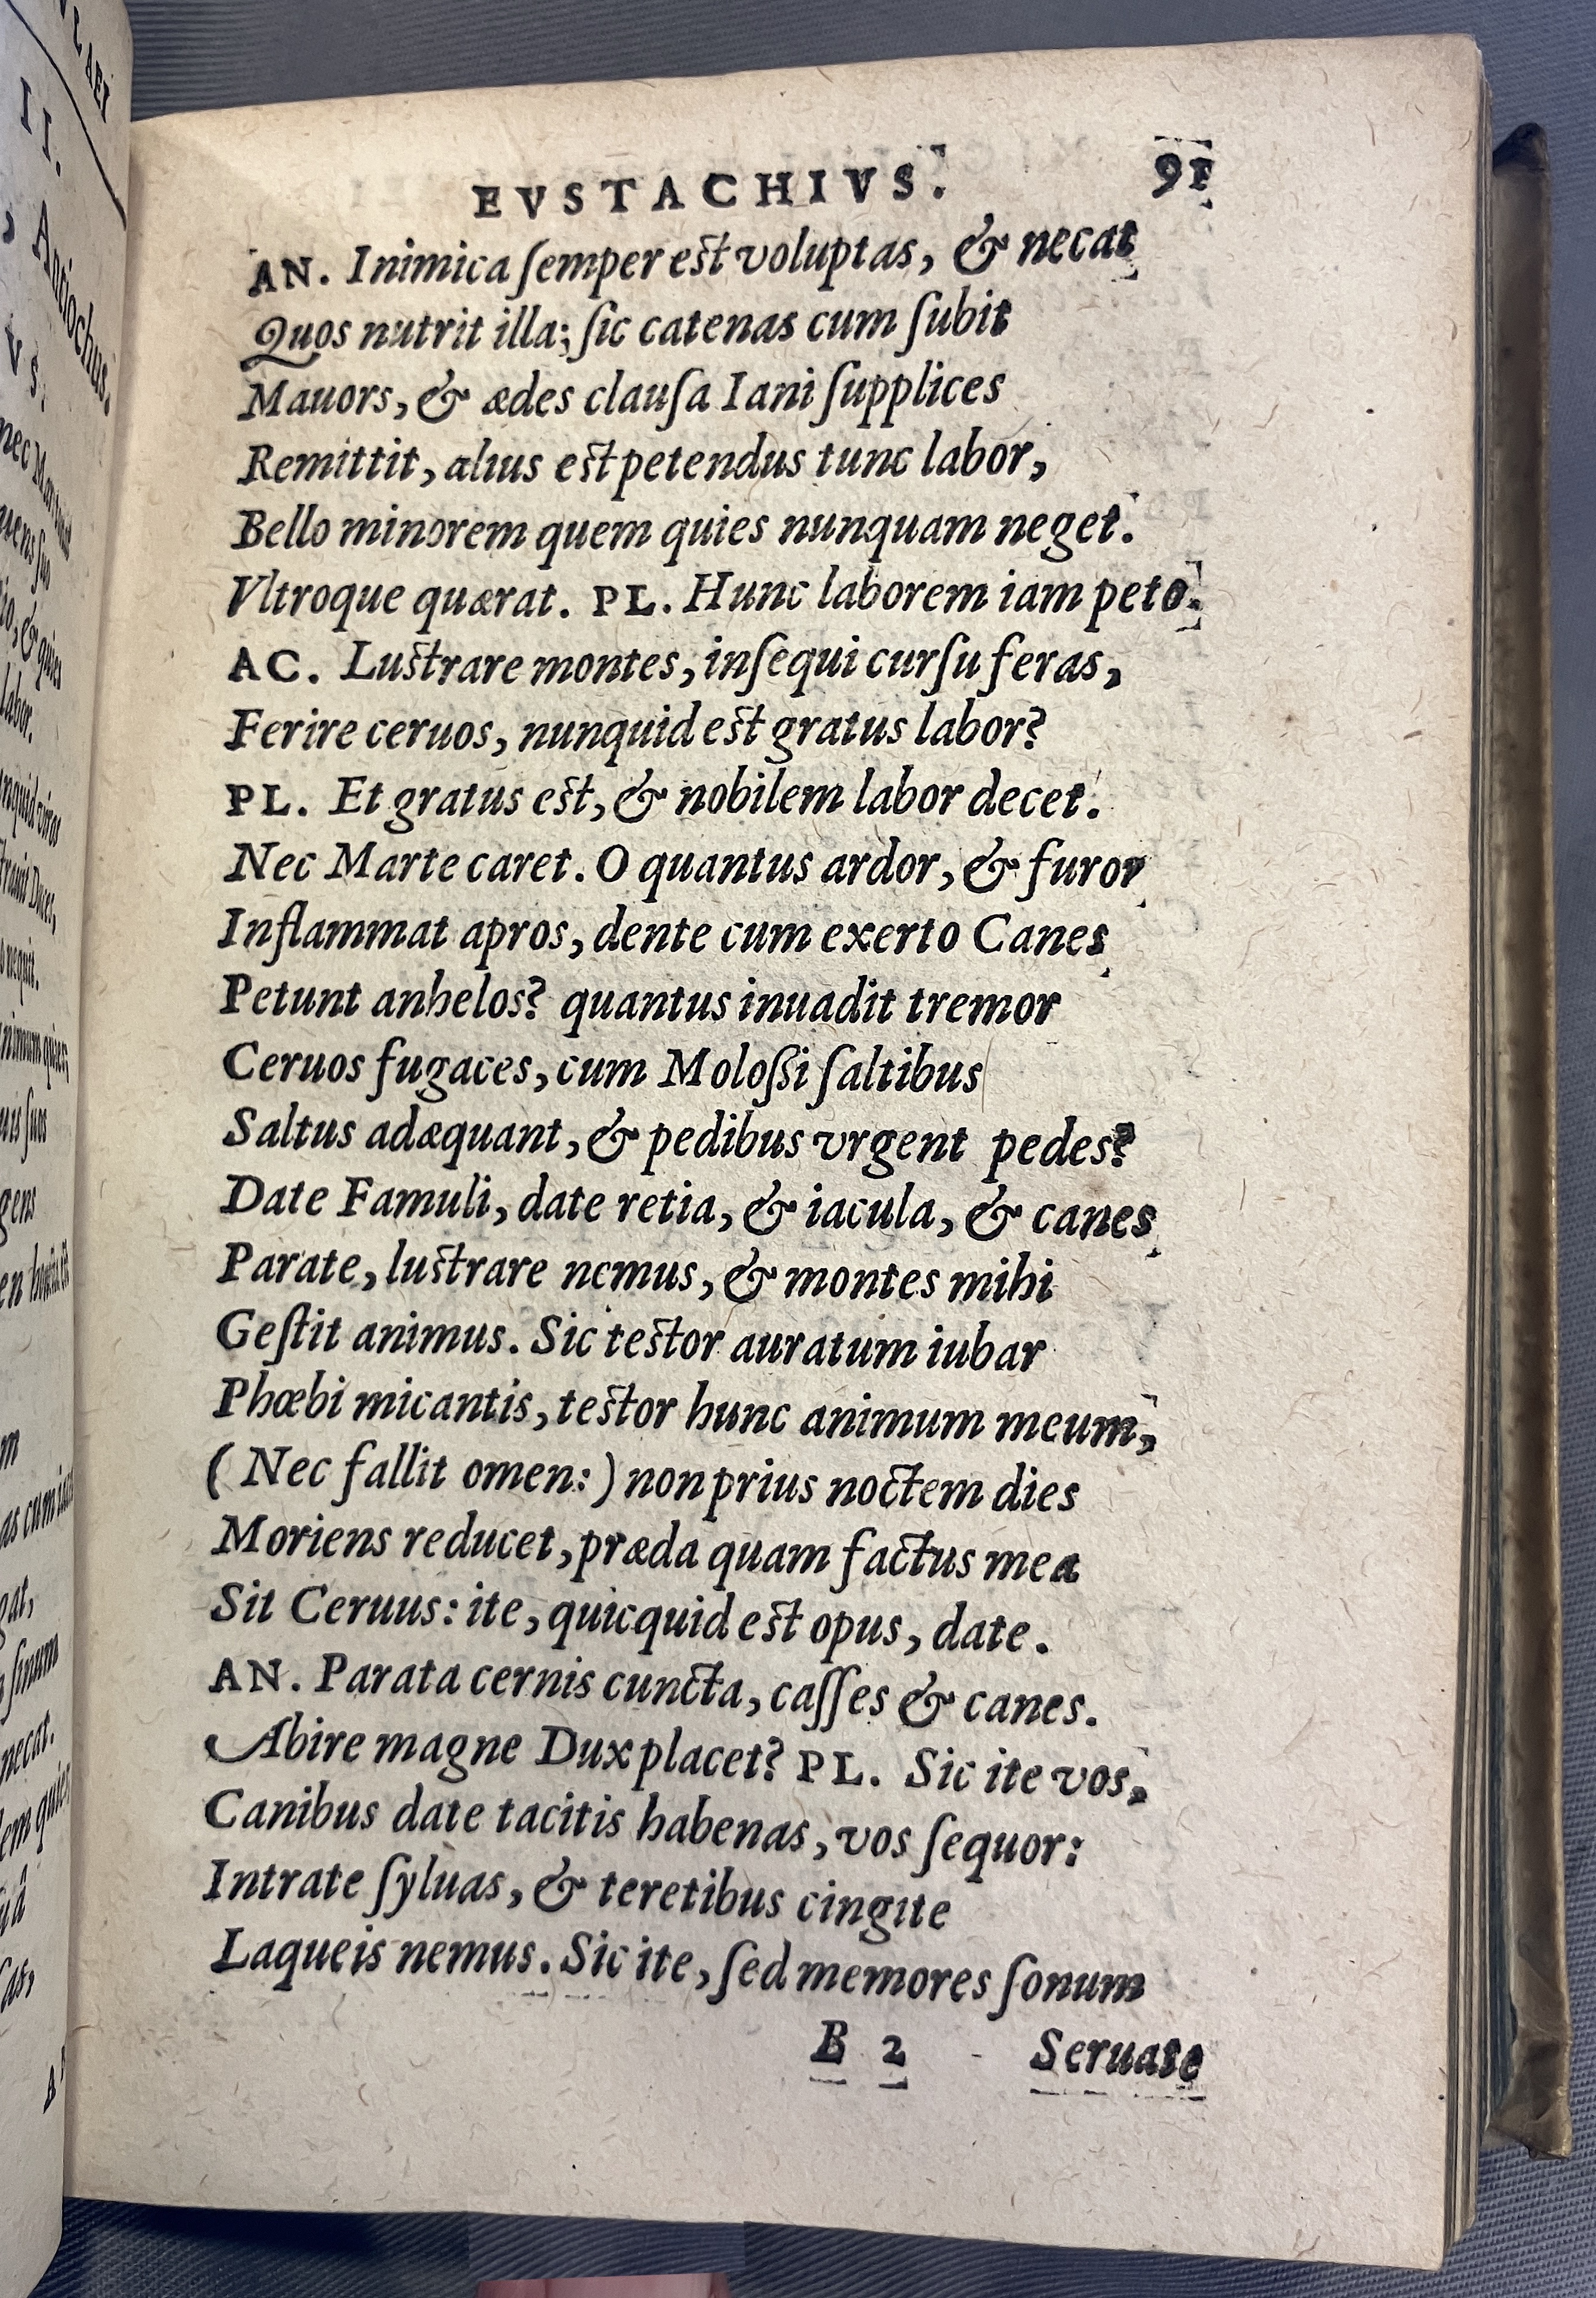 EVSTACHIVS. 91
AN. Inimica ſemper eſt voluptas, & necat
Quos nutrit illa; ſic catenas cum ſubit
Mauors, & ædes clauſa Iani ſupplices
Remittit, alius eſt petendus tunc labor,
Bello minorem quem quies nunquam neget.
Vltroque quærat. PL. Hunc laborem iam peto.
AC. Luſtrare montes, inſequi curſu feras,
Ferire ceruos, nunquid eſt gratus labor?
PL. Et gratus eſt, & nobilem labor decet.
Nec Marte caret. O quantus ardor, & furor
Inflammat apros, dente cum exerto Canes
Petunt anhelos? quantus inuadit tremor
Ceruos fugaces, cum Moloſſi ſaltibus
Saltus adæquant, & pedibus vrgent pedes?
Date Famuli, date retia, & iacula, & canes
Parate, luſtrare nemus, & montes mihi
Geſtit animus. Sic teſtor auratum iubar
Phœbi micantis, teſtor hunc animum meum,
( Nec fallit omen: ) non prius noctem dies
Moriens reducet, præda quam factus mea
Sit Ceruus: ite, quicquid eſt opus, date.
AN. Parata cernis cuncta, caſſes & canes.
Abire magne Dux placet? PL. Sic ite vos,
Canibus date tacitis habenas, vos ſequor:
Intrate ſyluas, & teretibus cingite
Laqueis nemus. Sic ite, ſed memores ſonum
B 2 Seruate
II.
Antiochus.
labor.
nequit.
gens
ſinum
necat.